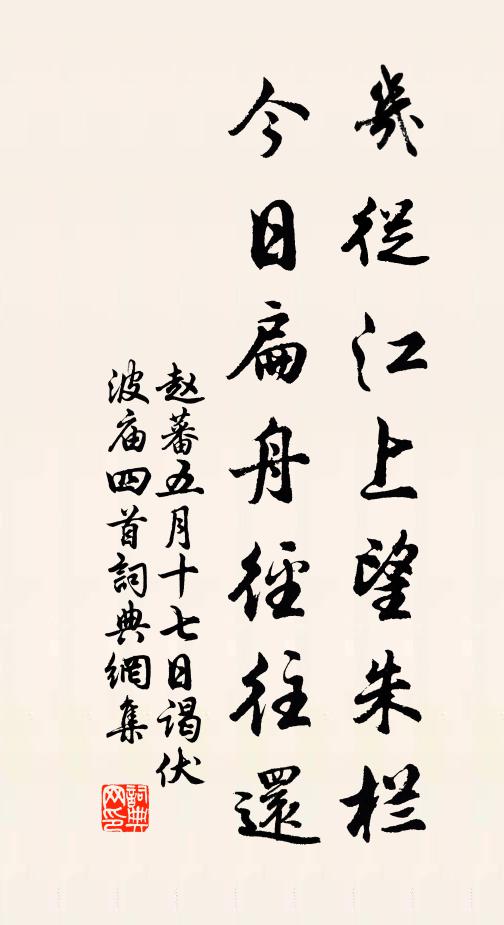 幾從江上望朱栏
今日扁舟徑往還
赵蕃五月十七日谒伏
波庙四首詞典網集
詞典
网印